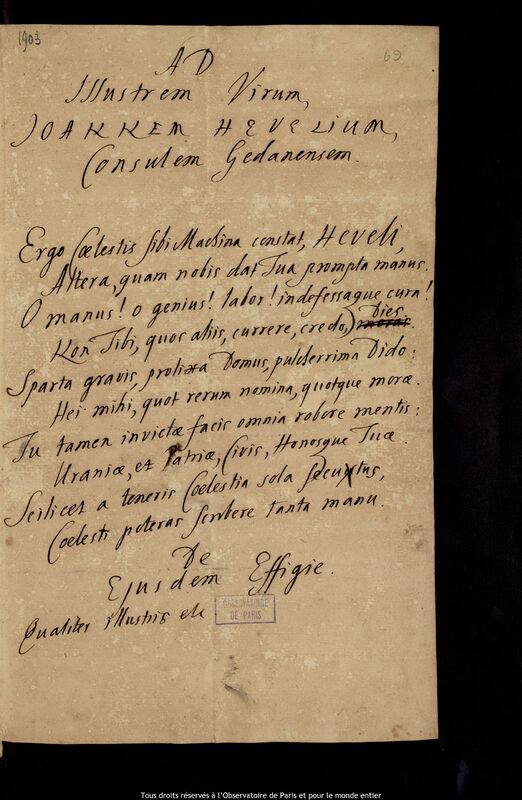 1903
69
AD
Illustrem Virum,
JOANNEM HEVELIUM,
Consulem Gedanensem.
Ergo Cœlestis sibi Machina constat, Heveli,
Altera, quam nobis dat Tua prompta manus.
O manus! o genius! labor! indefessaque cura!
Non Tibi, quos aliis, currere, credo, Dies.
Sparta gravis, prolixa Domus, pulcherrima Dido:
Hei mihi, quot rerum nomina, quotque moræ.
Tu tamen invictæ facis omnia robore mentis:
Uraniæ, et Patriæ, Civis, Honosque Tuæ.
Scilicet a teneris Coelestia sola secutus,
Coelesti poteras scribere tanta manu.
De
Ejusdem Effigie.
Qualiter illustris etc
OBSERVATOIRE
DE PARIS
Tous droits réservés à l'Observatoire de Paris et pour le monde entier